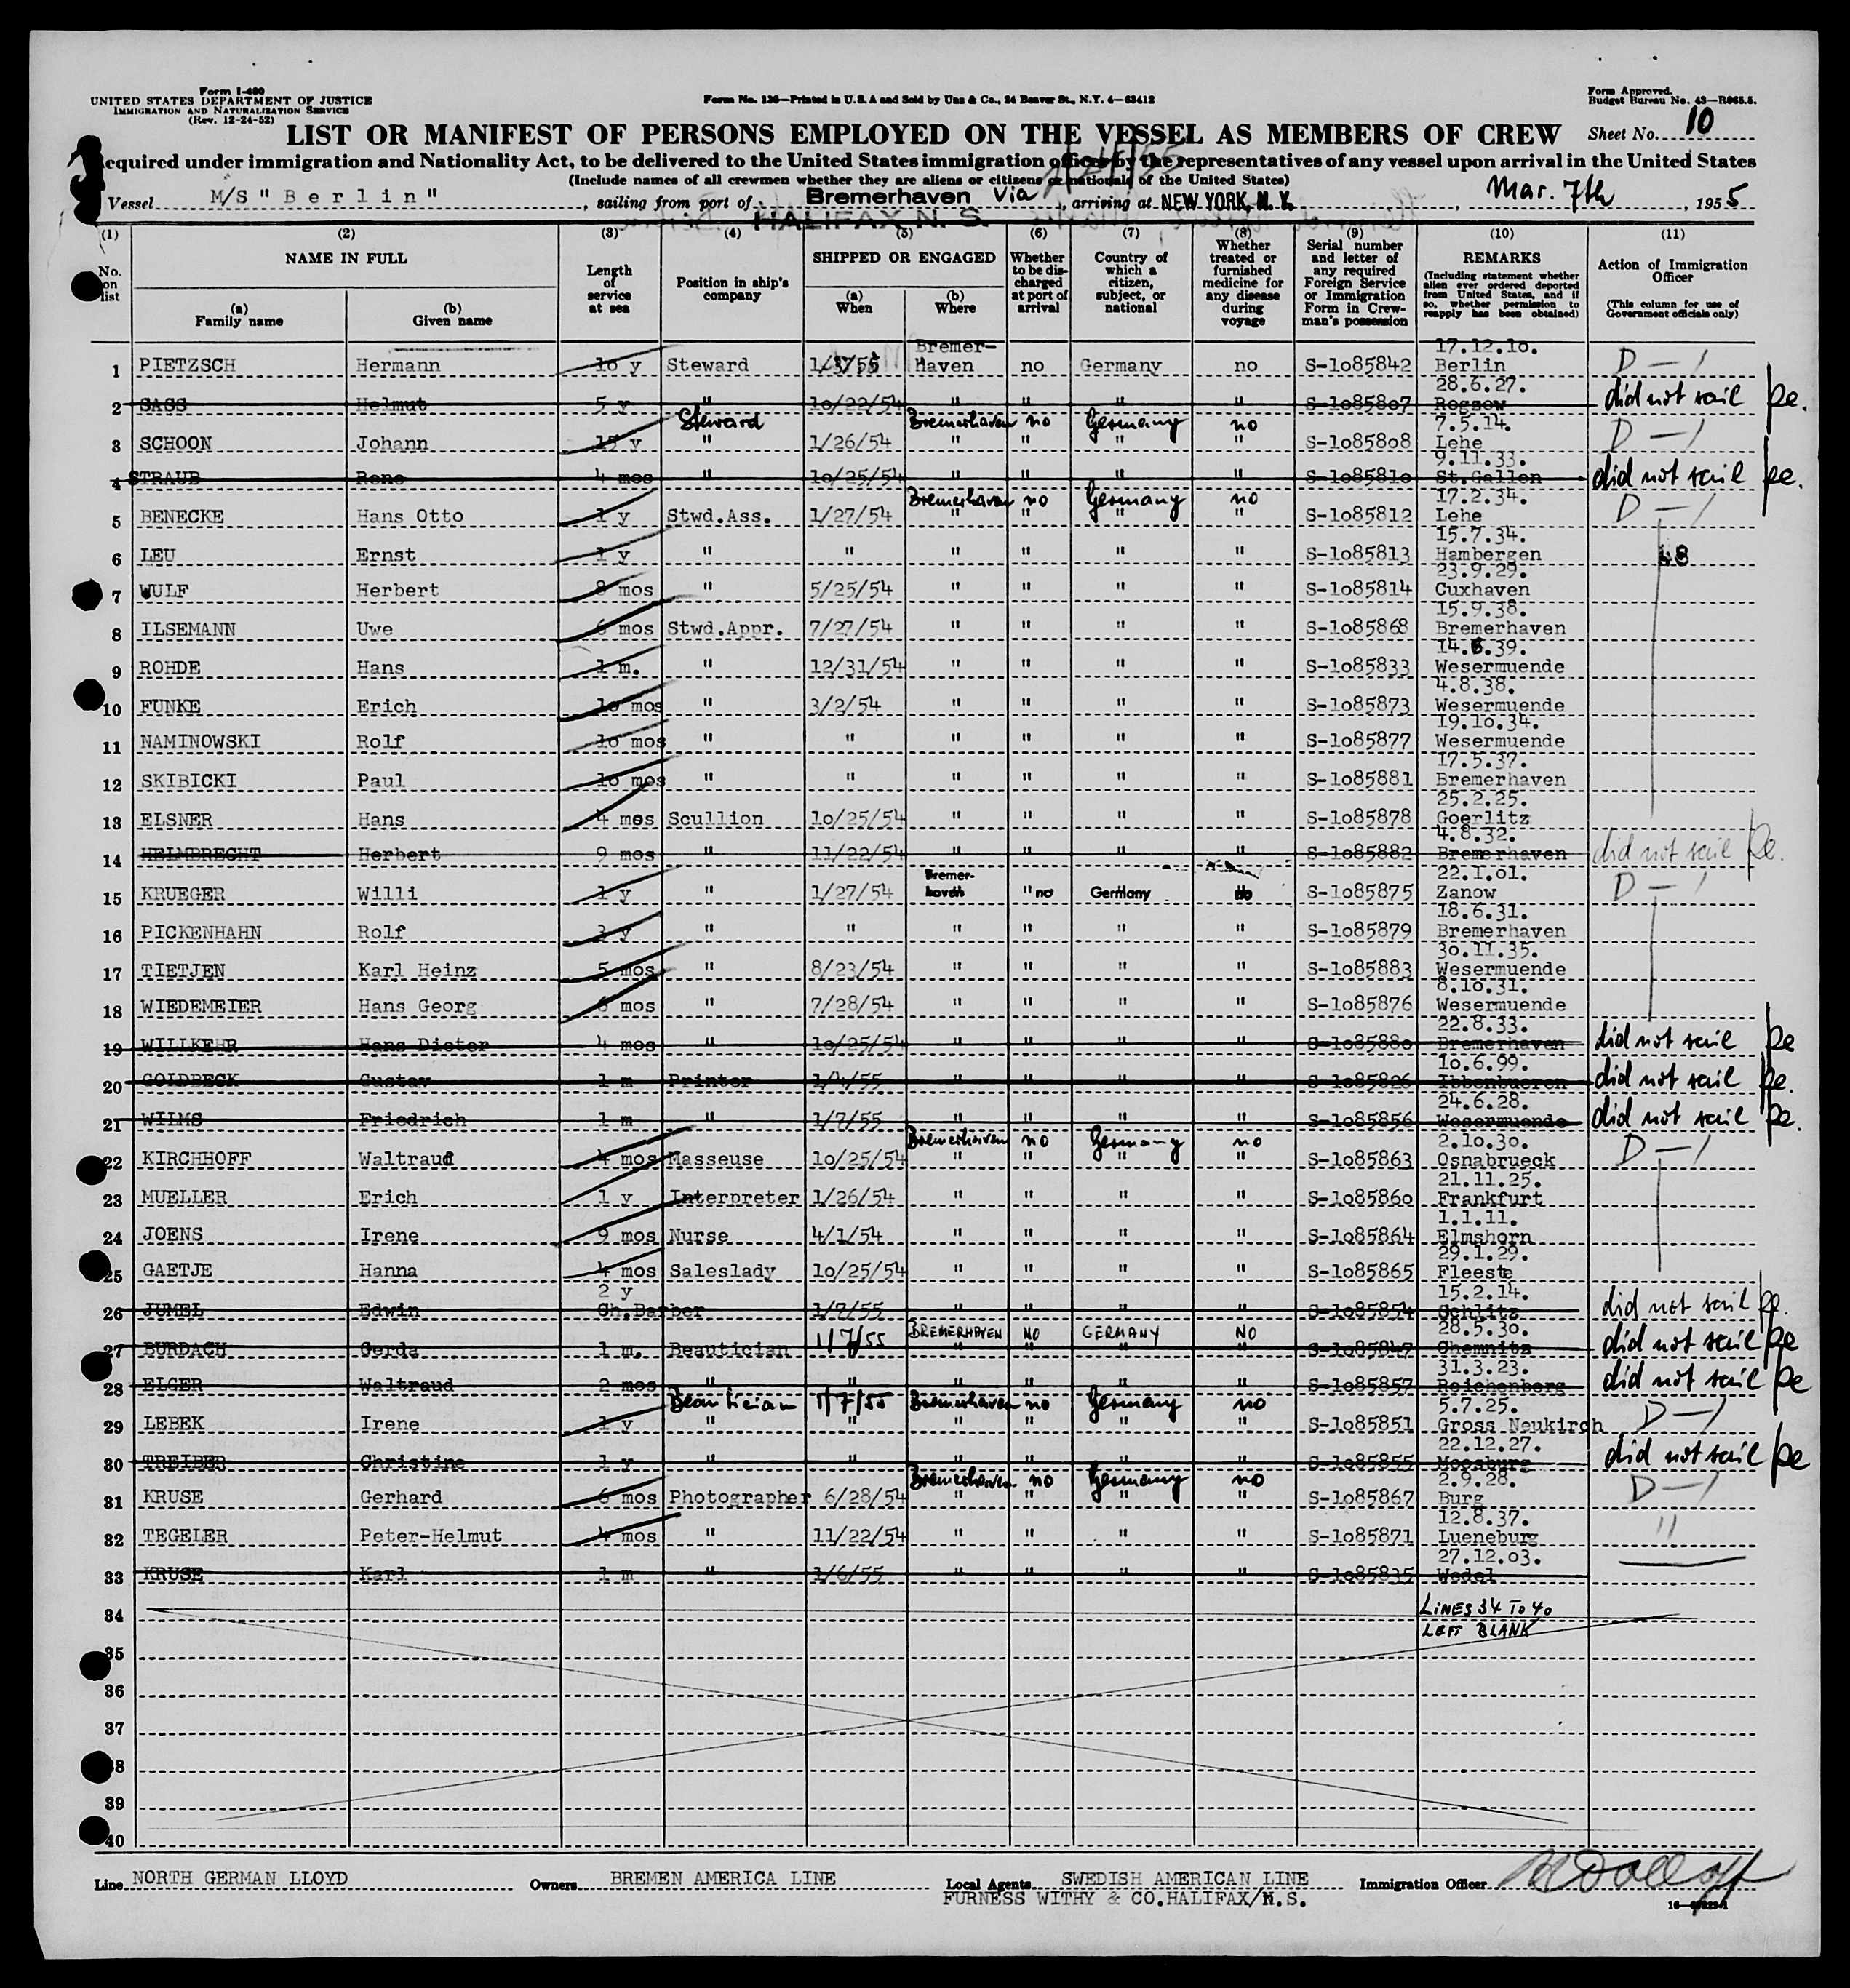 Form I-480
UNITED STATES DEPARTMENT OF JUSTICE
IMMIGRATION AND NATURALIZATION SERVICE
(Rev. 12-24-52)
Form No. 136—Printed in U.S.A and Sold by Unz & Co., 24 Beaver St., N.Y. 4—63412
Form Approved.
Budget Bureau No. 43—R065.5.
LIST OR MANIFEST OF PERSONS EMPLOYED ON THE VESSEL AS MEMBERS OF CREW
Sheet No. 10
equired under immigration and Nationality Act, to be delivered to the United States immigration officer by the representatives of any vessel upon arrival in the United States
(Include names of all crewmen whether they are aliens or citizens or nationals of the United States)
Vessel M/S "Berlin", sailing from port of Bremerhaven Via, arriving at NEW YORK, N.Y., Mar. 7th, 1955
HALIFAX N. S.
(1) (2) (3) (4) (5) (6) (7) (8) (9) (10) (11)
No. on list
NAME IN FULL
(a) Family name
(b) Given name
Length of service at sea
Position in ship's company
SHIPPED OR ENGAGED
(a) When
(b) Where
Whether to be discharged at port of arrival
Country of which a citizen, subject, or national
Whether treated or furnished medicine for any disease during voyage
Serial number and letter of any required Foreign Service or Immigration Form in Crewman's possession
REMARKS
(Including statement whether alien ever ordered deported from United States, and if so, whether permission to reapply has been obtained)
Action of Immigration Officer
(This column for use of Government officials only)
1 PIETZSCH Hermann 10 y Steward 1/3/55 Bremer-Haven no Germany no S-1o85842 17.12.1o. Berlin D-1
2 SASS Helmut 5 y " 1o/22/54 " " " " S-1o858o7 28.6.27. Rogzow did not sail pe.
Steward Bremerhaven no Germany no
3 SCHOON Johann 15 y " 1/26/54 " " " " S-1o858o8 7.5.14. Lehe D-1
4 STRAUB Rene 4 mos " 1o/25/54 " " " " S-1o8581o 9.11.33. St.Gallen did not sail pe.
Bremerhaven no Germany no
5 BENECKE Hans Otto 1 y Stwd.Ass. 1/27/54 " " " " S-1o85812 17.2.34. Lehe D-1
6 LEU Ernst 1 y " " " " " " S-1o85813 15.7.34. Hambergen
7 WULF Herbert 8 mos " 5/25/54 " " " " S-1o85814 23.9.29. Cuxhaven
8 ILSEMANN Uwe 6 mos Stwd.Appr. 7/27/54 " " " " S-1o85868 15.9.38. Bremerhaven
9 ROHDE Hans 1 m. " 12/31/54 " " " " S-1o85833 14.6.39. Wesermuende
10 FUNKE Erich 1o mos " 3/2/54 " " " " S-1o85873 4.8.38. Wesermuende
11 NAMINOWSKI Rolf 1o mos " " " " " " S-1o85877 19.1o.34. Wesermuende
12 SKIBICKI Paul 1o mos " " " " " " S-1o85881 17.5.37. Bremerhaven
13 ELSNER Hans 4 mos Scullion 1o/25/54 " " " " S-1o85878 25.2.25. Goerlitz
14 HELMBRECHT Herbert 9 mos " 11/22/54 " " " " S-1o85882 4.8.32. Bremerhaven did not sail pe.
15 KRUEGER Willi 1 y " 1/27/54 Bremer-haven " no Germany no S-1o85875 22.1.o1. Zanow D-1
16 PICKENHAHN Rolf 3 y " " " " " " S-1o85879 18.6.31. Bremerhaven
17 TIETJEN Karl Heinz 5 mos " 8/23/54 " " " " S-1o85883 3o.11.35. Wesermuende
18 WIEDEMEIER Hans Georg 6 mos " 7/28/54 " " " " S-1o85876 8.1o.31. Wesermuende
19 WILLKEHR Hans Dieter 4 mos " 1o/25/54 " " " " S-1o8588o 22.8.33. Bremerhaven did not sail pe
20 GOLDBECK Gustav 1 m Printer 1/4/55 " " " " S-1o85826 1o.6.99. Ibbenbueren did not sail pe.
21 WILMS Friedrich 1 m " 1/7/55 " " " " S-1o85856 24.6.28. Wesermuende did not sail pe.
Bremerhaven no Germany no
22 KIRCHHOFF Waltraud 4 mos Masseuse 1o/25/54 " " " " S-1o85863 2.1o.3o. Osnabrueck D-1
23 MUELLER Erich 1 y Interpreter 1/26/54 " " " " S-1o8586o 21.11.25. Frankfurt
24 JOENS Irene 9 mos Nurse 4/1/54 " " " " S-1o85864 1.1.11. Elmshorn
25 GAETJE Hanna 4 mos Saleslady 1o/25/54 " " " " S-1o85865 29.1.29. Fleeste
26 JUMEL Edwin 2 y Ch.Barber 1/7/55 " " " " S-1o85854 15.2.14. Schlitz did not sail pe.
1/7/55 BREMERHAVEN NO GERMANY NO
27 BURDACH Gerda 1 m. Beautician " " " " S-1o85847 28.5.3o. Chemnitz did not sail pe
28 ELGER Waltraud 2 mos " " " " " " S-1o85857 31.3.23. Reichenberg did not sail pe
Beautician 1/7/55 Bremerhaven no Germany no
29 LEBEK Irene 1 y " " " " " " S-1o85851 5.7.25. Gross Neukirch D-1
30 TREIBER Christine 1 y " " " " " " S-1o85855 22.12.27. Moosburg did not sail pe
Bremerhaven no Germany no
31 KRUSE Gerhard 6 mos Photographer 6/28/54 " " " " S-1o85867 2.9.28. Burg D-1
32 TEGELER Peter-Helmut 4 mos " 11/22/54 " " " " S-1o85871 12.8.37. Lueneburg "
33 KRUSE Karl 1 m " 1/6/55 " " " " S-1o85835 27.12.o3. Wedel
34 LINES 34 TO 40
LEFT BLANK
35
36
37
38
39
40
Line NORTH GERMAN LLOYD Owners BREMEN AMERICA LINE Local Agents SWEDISH AMERICAN LINE Immigration Officer
FURNESS WITHY & CO.HALIFAX/N.S.